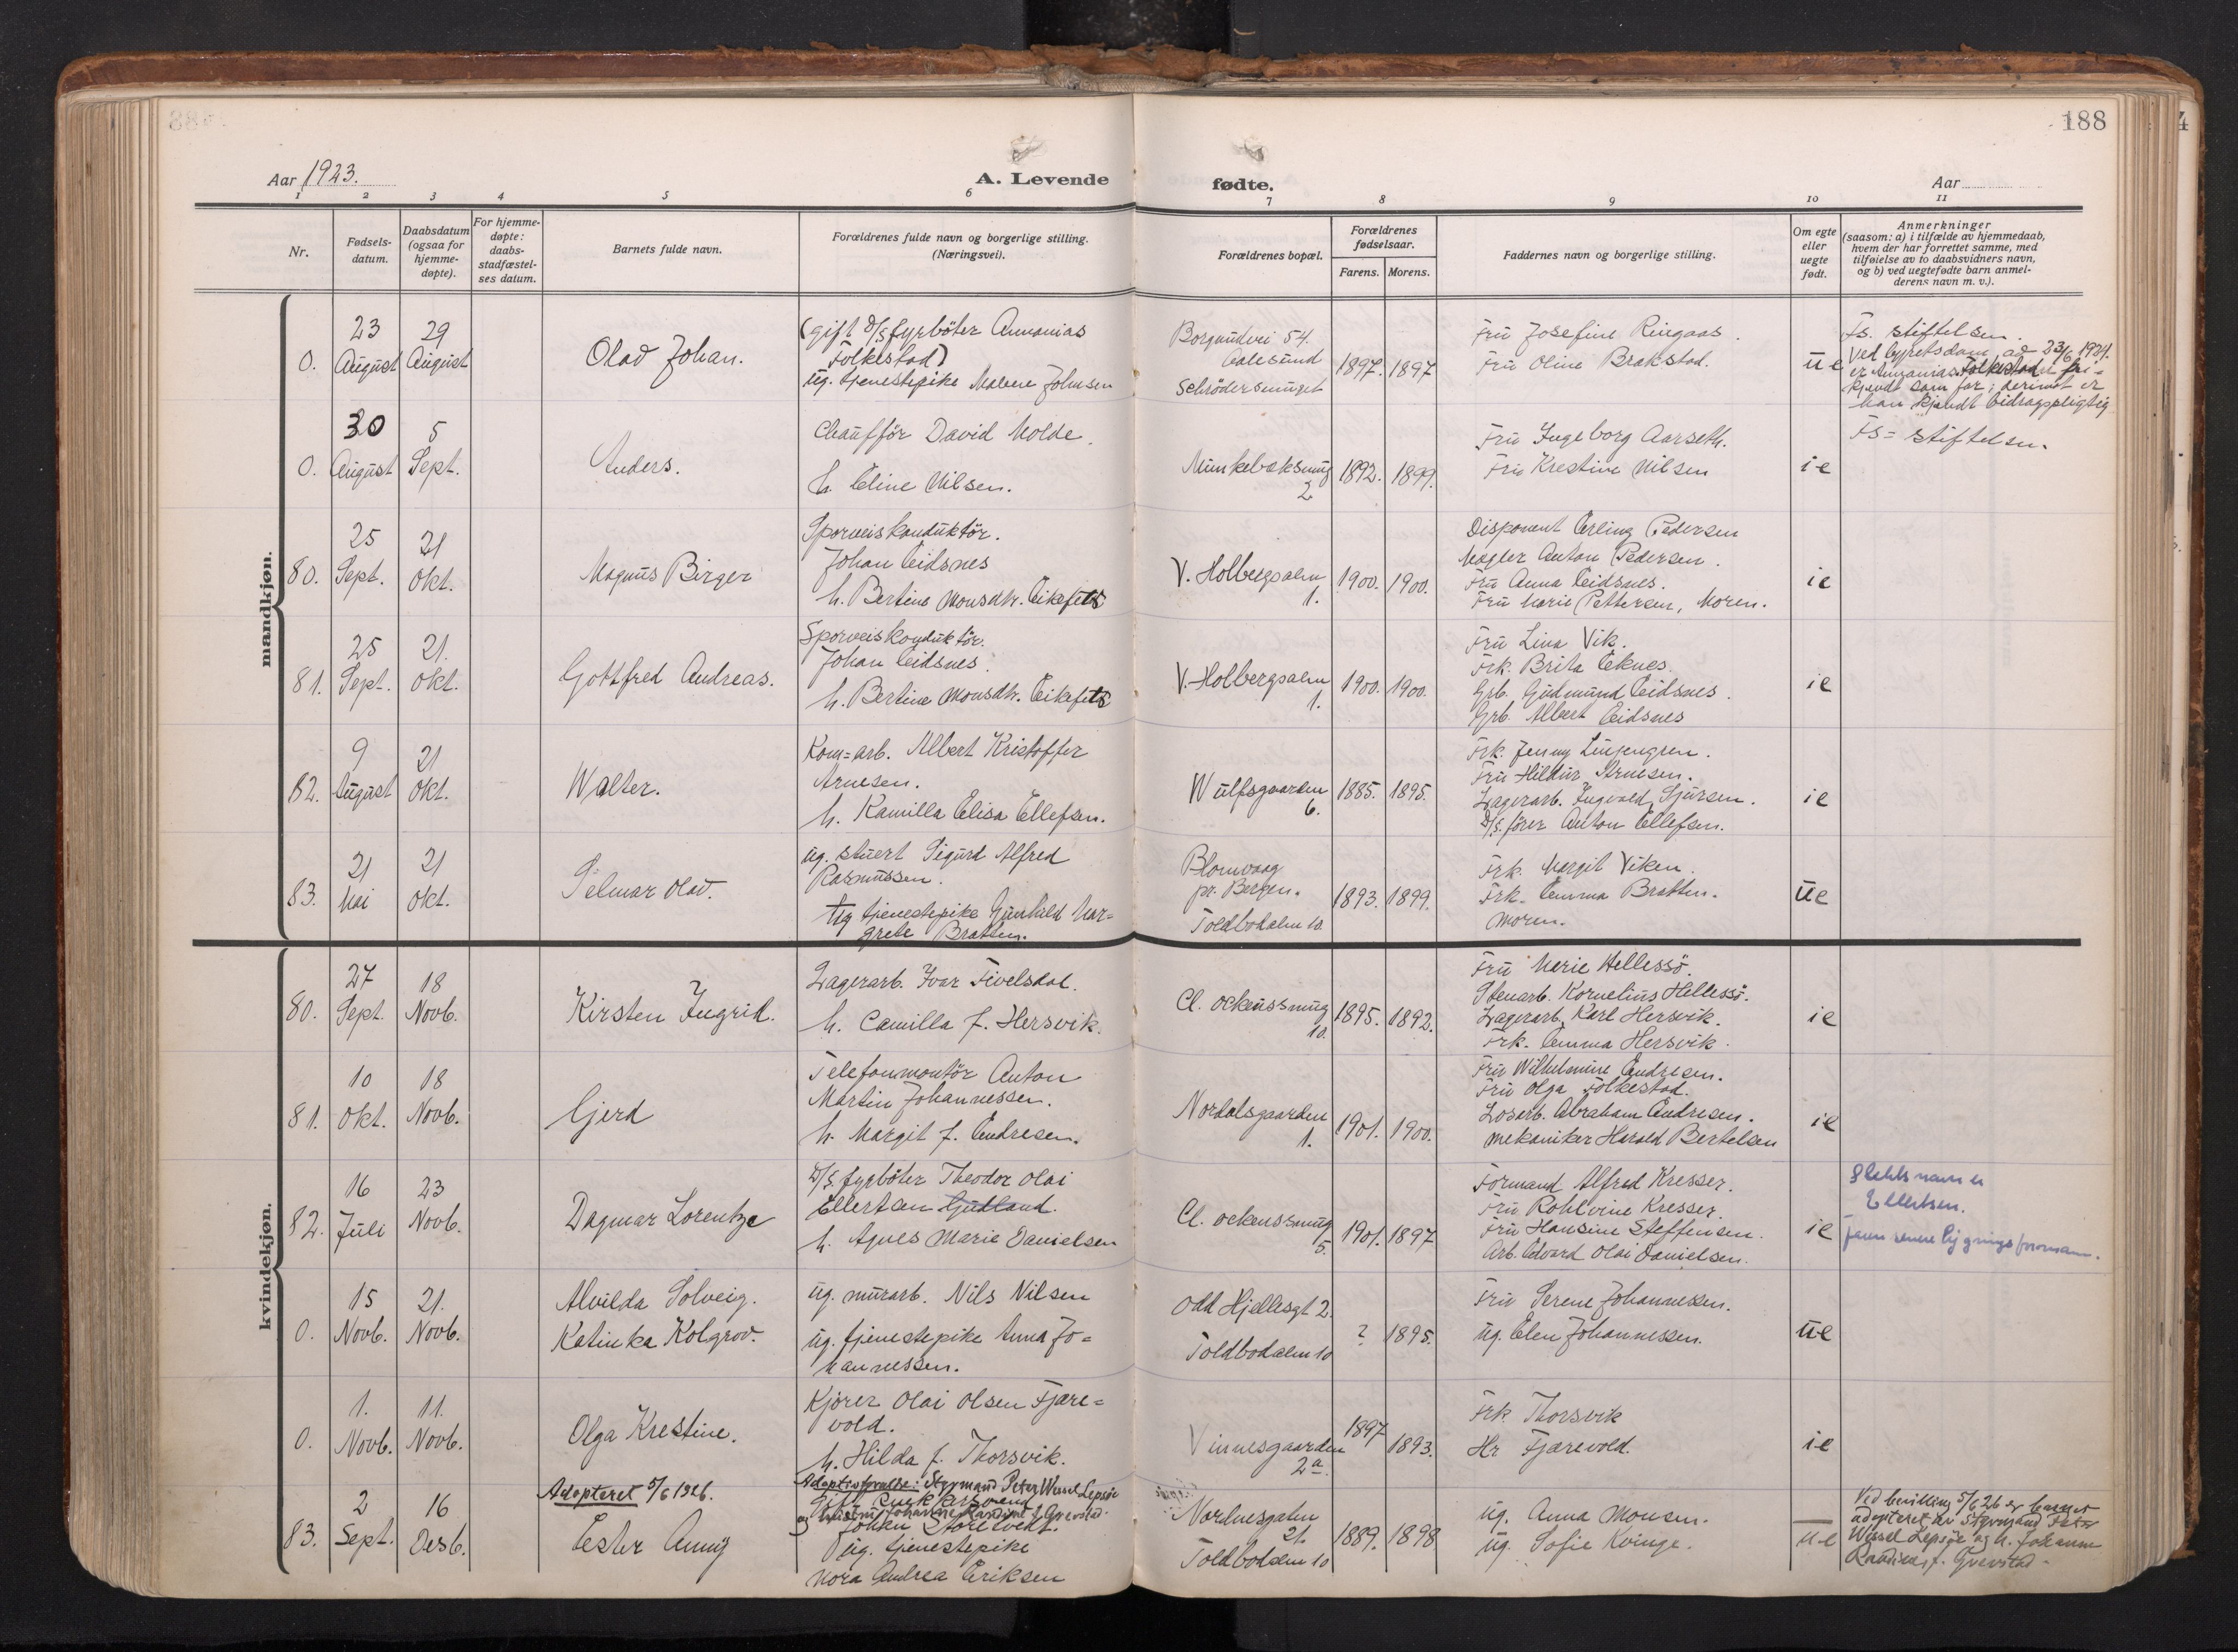 188
Aar 1923.
A. Levende fødte.
Aar
1 2 3 4 5 6 7 8 9 10 11
Nr.
Fødsels-
datum.
Daabsdatum
(ogsaa for
hjemme-
døpte).
For hjemme-
døpte:
daabs-
stadfæstel-
ses datum.
Barnets fulde navn.
Forældrenes fulde navn og borgerlige stilling.
(Næringsvei).
Forældrenes bopæl.
Forældrenes
fødselsaar.
Farens. Morens.
Faddernes navn og borgerlige stilling.
Om egte
eller
uegte
født.
Anmerkninger
(saasom: a) i tilfælde av hjemmedaab,
hvem der har forrettet samme, med
tilføielse av to daabsvidners navn,
og b) ved uegtefødte barn anmel-
derens navn m. v.).
mandkjøn.
0.
23
August
29
August
Olav Johan.
(gift D/S fyrböter Annanias
Folkestad)
ug. tjenestepike Malene Johnsen
Borgundvei 54.
Aalesund
Schrödersmuget
1897. 1897
Fru Josefine Ringaas.
Fru Oline Brakstad.
ue
Fs. stiftelsen.
Ved byretsdom av 23/6 1924.
er Annanias Folkestad fri-
kjendt som far; derimot er
han kjendt bidragspligtig
0.
30
August
5
Sept.
Anders.
Chaufför David Molde.
h. Eline Nilsen.
Munkebæksmug
2
1892. 1899.
Fru Ingeborg Aarseth.
Fru Krestine Nilsen
ie
Fs = stiftelsen.
80.
25
Sept.
21
Okt.
Magnus Birger
Sporveiskonduktör.
Johan Eidsnes
h. Bertine Monsdtr. Eikefet
V. Holbergsalm
1.
1900. 1900.
Disponent Erling Pedersen
Mægler Anton Pedersen.
Fru Anna Eidsnes.
Fru Marie Pettersen, Moren.
ie
81.
25
Sept.
21.
Okt.
Gottfred Andreas.
Sporveiskonduktör.
Johan Eidsnes.
h. Bertine Monsdtr. Eikefet
V. Holbergsalm
1.
1900. 1900.
Fru Lina Vik.
Frk. Brita Eknes.
Grb. Gudmund Eidsnes.
Grb. Albert Eidsnes
ie
82.
9
August
21
Okt.
Walter.
Kom=arb. Albert Kristoffer
Arnesen.
h. Kamilla Elisa Ellefsen.
Wulfsgaarden
6.
1885. 1895.
Frk. Jenny
Fru Hildur Arnesen.
Lagerarb. Ingvald Sjursen.
D/S förer Anton Ellefsen.
ie
83.
21
Mai
21
Okt.
Selmar Olav.
ug. stuert Sigurd Alfred
Rasmussen.
ug tjenestepike Gunhild Mar=
grete Bratten.
Blomvaag
pr. Bergen.
Toldbodalm 10.
1893. 1899.
Frk. Margit Viken.
Frk. Emma Bratten.
Moren.
ue
kvindekjøn.
80.
27
Sept.
18
Novb.
Kirsten Ingrid.
Lagerarb. Ivar Fivelsdal.
h. Camilla f. Hersvik.
Cl. Ockenssmug
10.
1895. 1892.
Fru Marie Hellessö.
Stenarb. Kornelius Hellessö.
Lagerarb. Karl Hersvik.
Frk. Emma Hersvik.
ie
81.
10
Okt.
18
Novb.
Gjerd
Telefonmontör Anton
Martin Johannessen.
h. Margit f. Endresen.
Nordalsgaarden
1.
1901. 1900.
Fru Wilhelmine Endresen.
Fru Olga Folkestad.
Losarb. Abraham Endresen.
Mekaniker Harald Bertelsen
ie
82.
16
Juli
23
Novb.
Dagmar Lorentze
D/S. fyrböter Theodor Olai
Ellertsen Gulland.
h. Agnes Marie Danielsen
Cl. Ockenssmug
5.
1901. 1897
Formand Alfred Kresser.
Fru Rohlvine Kresser.
Fru Hansine Steffensen.
Arb. Edvard Olai Danielsen.
ie
Slektsnavn er
Ellertsen.
faren senere
0.
15
Novb.
21.
Novb.
Alvilda Solveig.
Katinka Kolgrov.
ug. murarb. Nils Nilsen
ug. tjenestepike Anna Jo=
hannessen.
Odd Hjellesgt 2.
Toldbodalm 10
? 1895.
Fru Serene Johannessen.
ug. Elen Johannessen.
ue
0.
1.
Novb.
11.
Novb.
Olga Krestine.
Kjörer Olai Olsen Fjære=
vold.
h. Hilda f. Thorsvik.
Vinnesgaarden
2a.
1897 1893.
Frk. Thorsvik
Hr Fjærevold.
ie
83.
2
Sept.
16
Desb.
Adopteret 5/6 1926.
Ester Anny
Adoptivforældre: Styrmand Peter Wessel Lepsøe
og hustru Johanne Randine f. Grevstad.
Gift
Johan Storetvedt.
ug. tjenestepike
Nora Andrea Eriksen
Nordnesgaten
21.
Toldbodalm 10
1889. 1898
ug. Anna Monsen.
ug. Sofie Kvinge.
ue
Ved bevilling 5/6 26 er barnet
adopteret av Styrmand Peter
Wessel Lepsøe og h. Johanne
Randine f. Grevstad.